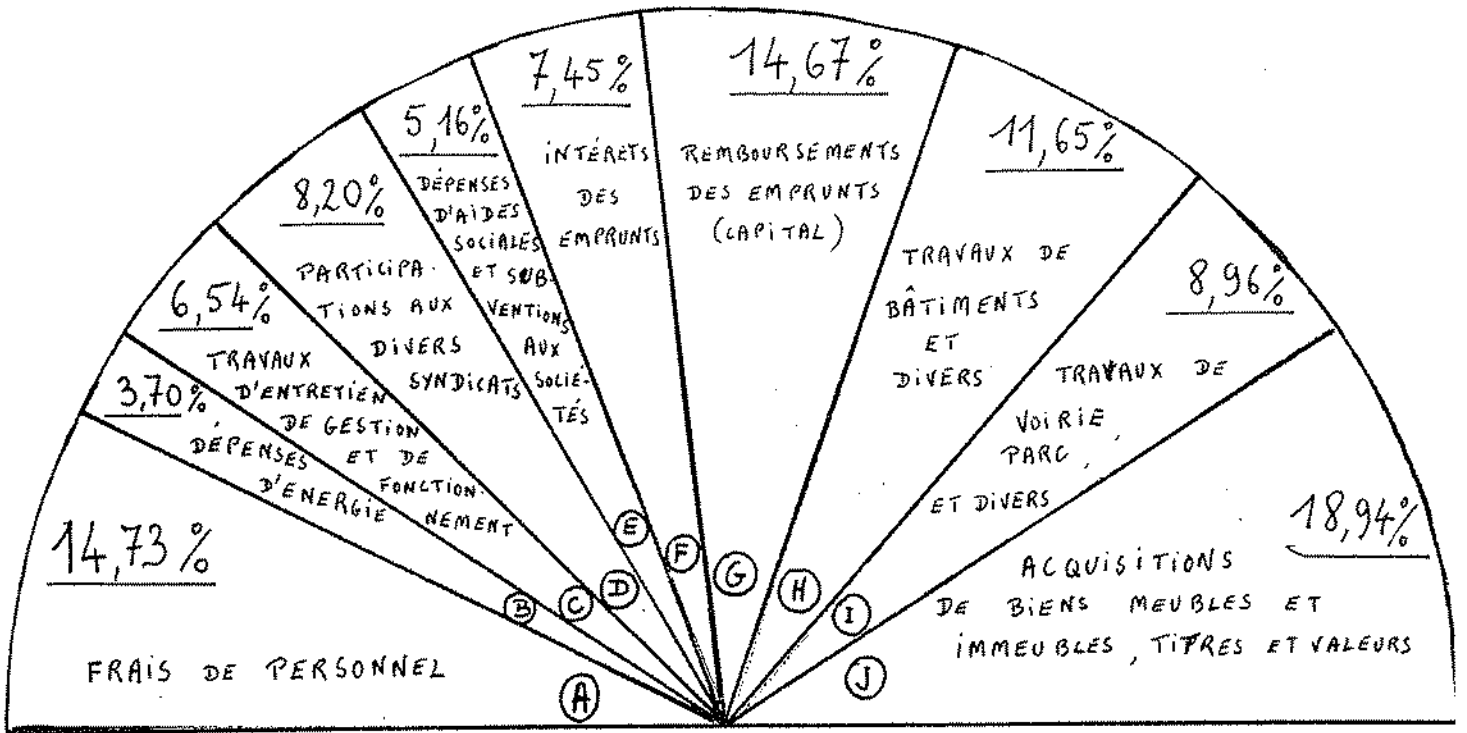 14,73%
FRAIS DE PERSONNEL
A
3,70%
DÉPENSES
D'ENERGIE
B
6,54%
TRAVAUX
D'ENTRETIEN
DE GESTION
ET DE
FONCTION-
NEMENT
C
8,20%
PARTICIPA-
TIONS AUX
DIVERS
SYNDICATS
D
5,16%
DÉPENSES
D'AIDES
SOCIALES
ET SUB-
VENTIONS
AUX
SOCIÉ-
TÉS
E
7,45%
INTÉRETS
DES
EMPRUNTS
F
14,67%
REMBOURSEMENTS
DES EMPRUNTS
(CAPITAL)
G
11,65%
TRAVAUX DE
BÂTIMENTS
ET
DIVERS
H
8,96%
TRAVAUX DE
VOIRIE,
PARC,
ET DIVERS
I
18,94%
ACQUISITIONS
DE BIENS MEUBLES ET
IMMEUBLES, TITRES ET VALEURS
J